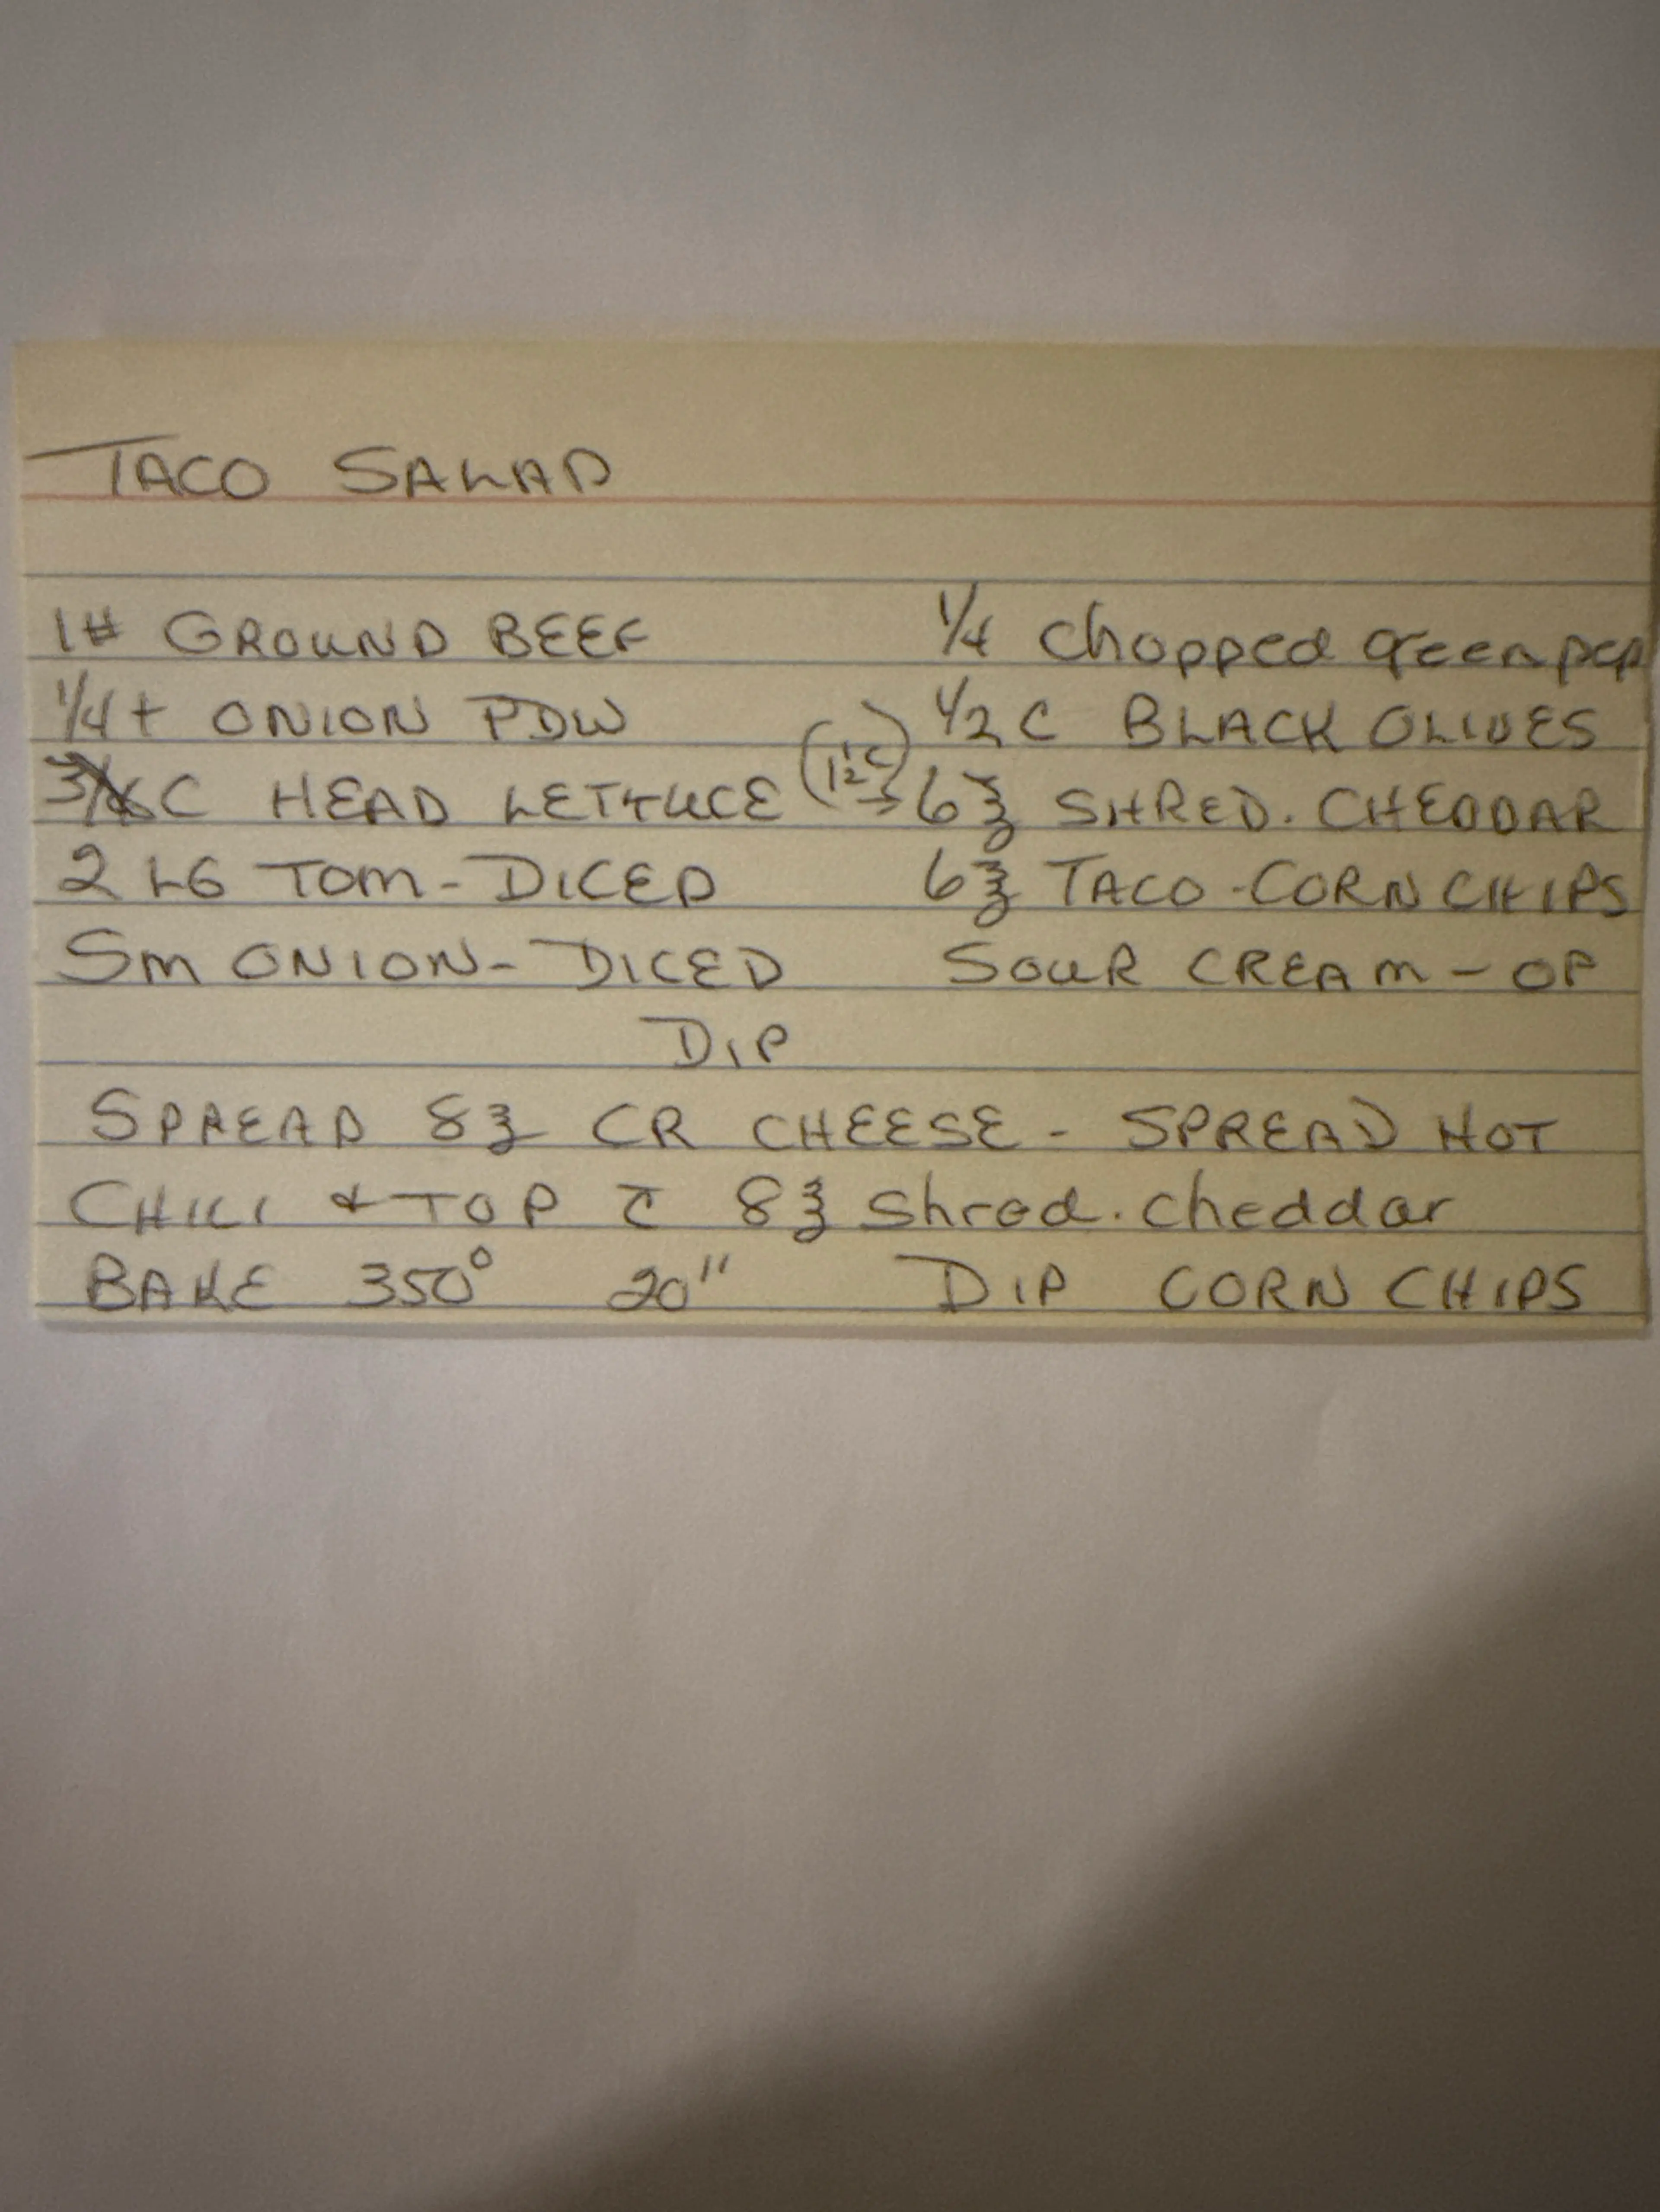 TACO SALAD
1# GROUND BEEF
1/4 t ONION PDW
C HEAD LETTUCE
2 LG TOM - DICED
Sm ONION - DICED
1/4 chopped green pep
1/2 C BLACK OLIVES
(1 1/2 C) → 6℥ SHRED. CHEDDAR
6℥ TACO - CORN CHIPS
SOUR CREAM - OP
DIP
SPREAD 8℥ CR CHEESE - SPREAD HOT
CHILI & TOP c̄ 8℥ shred. cheddar
BAKE 350° 20" DIP CORN CHIPS